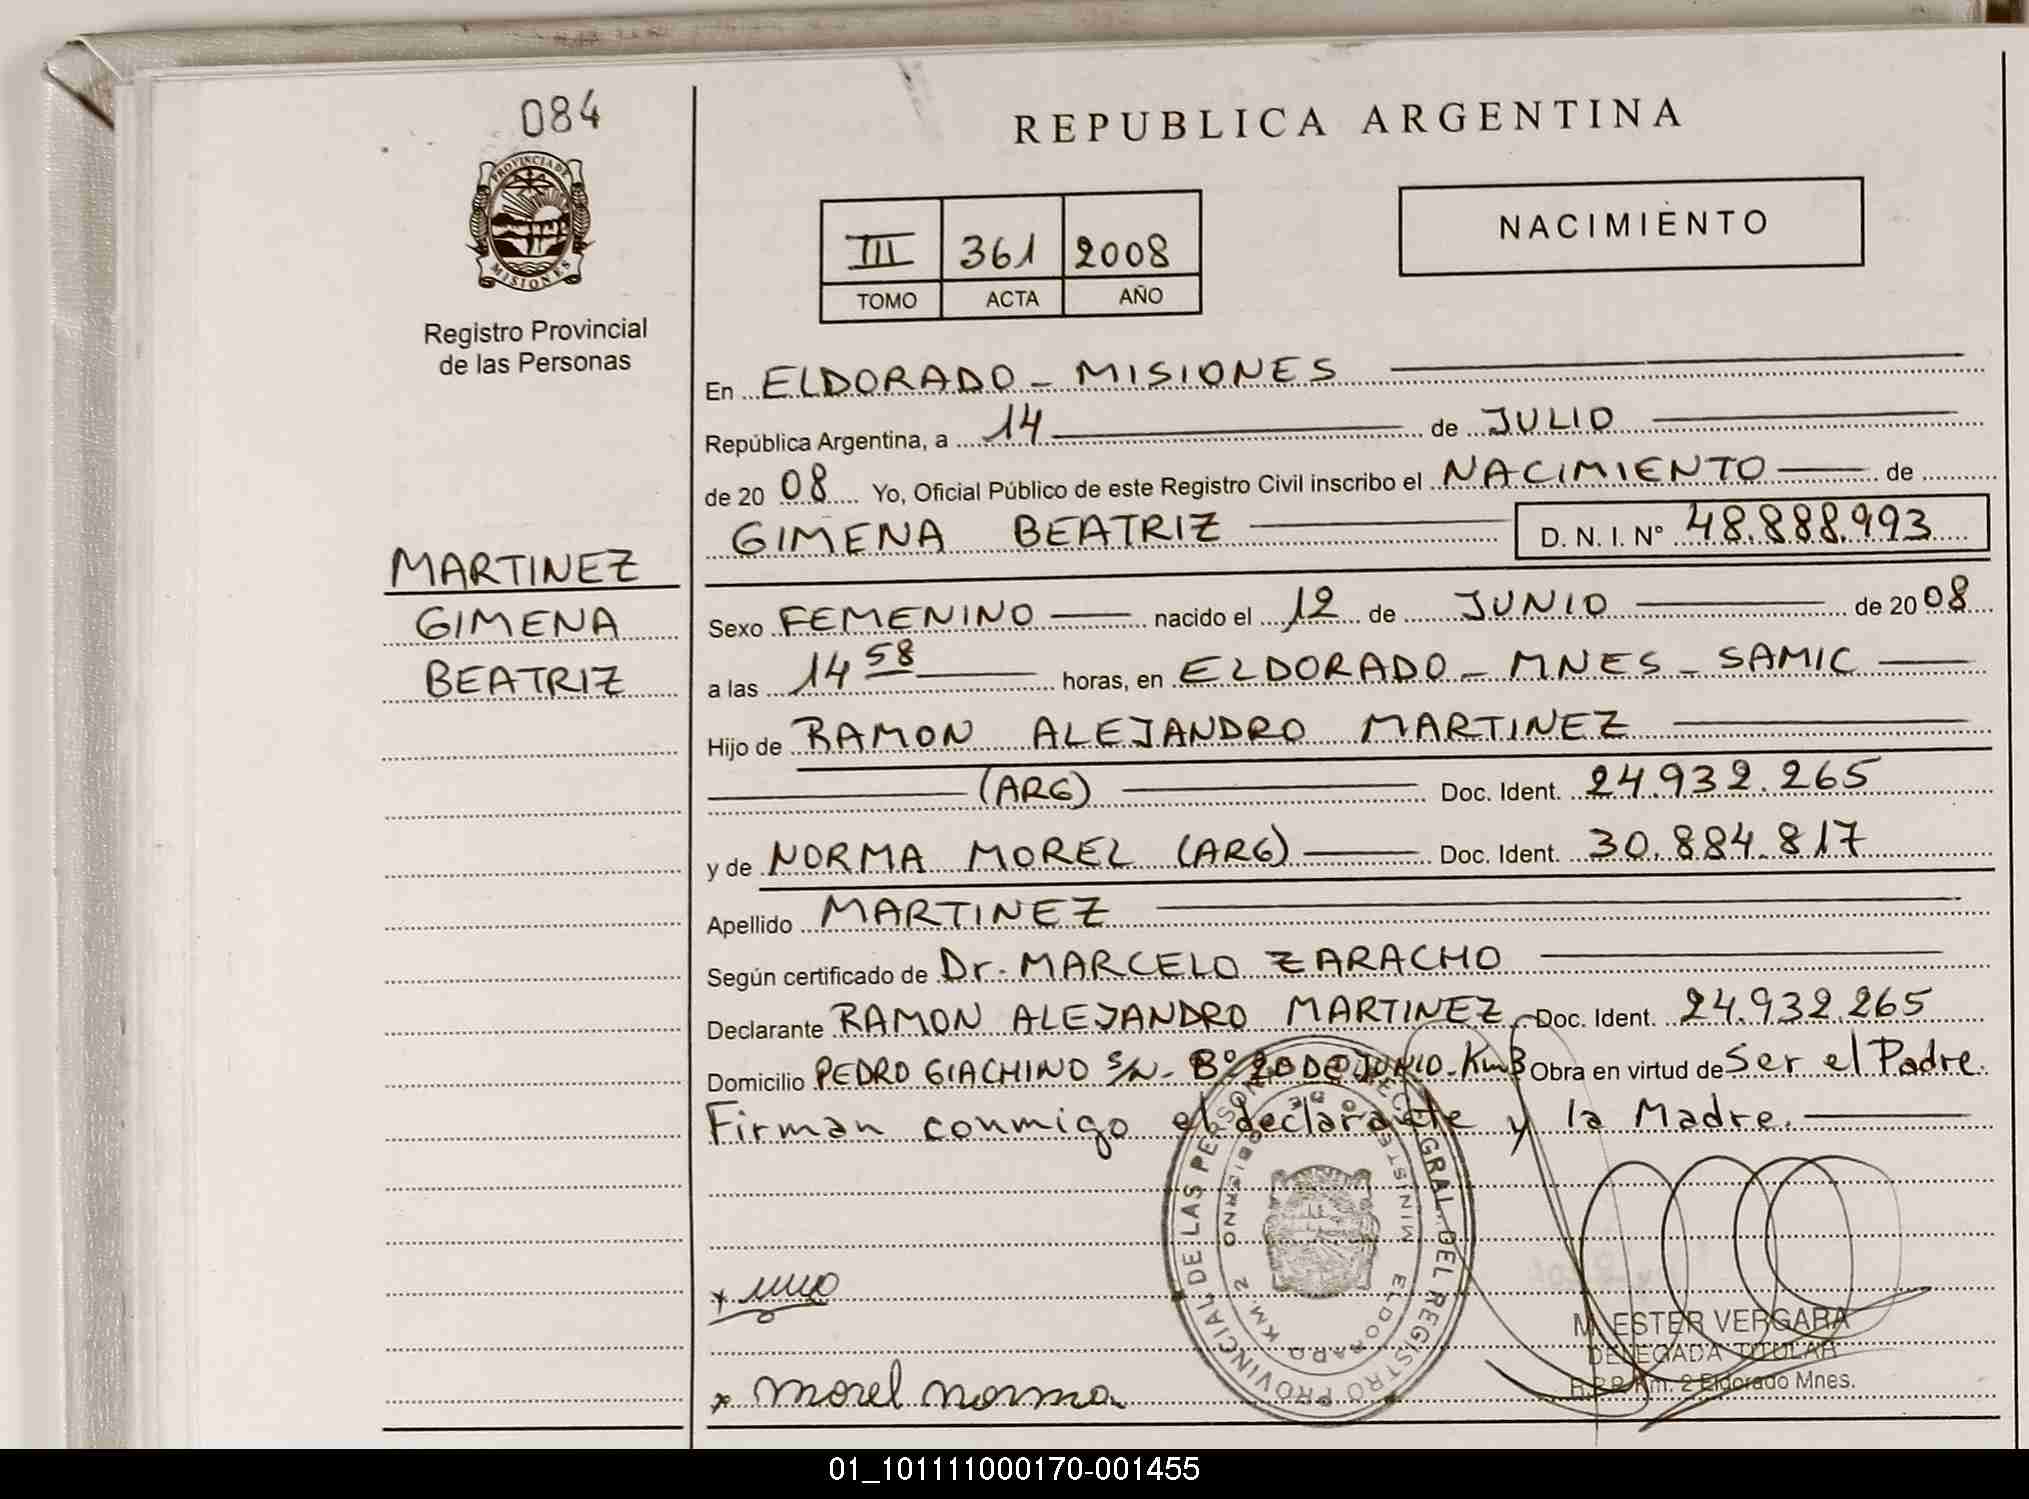 084
PROVINCIA DE
MISIONES
Registro Provincial
de las Personas
MARTINEZ
GIMENA
BEATRIZ
REPUBLICA ARGENTINA
III 361 2008
TOMO ACTA AÑO
NACIMIENTO
En ELDORADO - MISIONES
República Argentina, a 14 de JULIO
de 20 08 Yo, Oficial Público de este Registro Civil inscribo el NACIMIENTO de
GIMENA BEATRIZ D. N. I. Nº 48.888.993
Sexo FEMENINO nacido el 12 de JUNIO de 20 08
a las 14 58 horas, en ELDORADO - MNES - SAMIC
Hijo de RAMON ALEJANDRO MARTINEZ
(ARG) Doc. Ident. 24.932.265
y de NORMA MOREL (ARG) Doc. Ident. 30.884.817
Apellido MARTINEZ
Según certificado de Dr. MARCELO ZARACHO
Declarante RAMON ALEJANDRO MARTINEZ Doc. Ident. 24.932.265
Domicilio PEDRO GIACHINO S/N - Bº 20 DE JUNIO - Km 3 Obra en virtud de Ser el Padre.
Firman conmigo el declarante y la Madre.
GRAL. DEL REGISTRO PROVINCIAL DE LAS PERSONAS
MINISTERIO DE GOBIERNO
ELDORADO KM. 2
x morel norma
M. ESTER VERGARA
DELEGADA TITULAR
R.P.P. Km. 2 Eldorado Mnes.
01_101111000170-001455